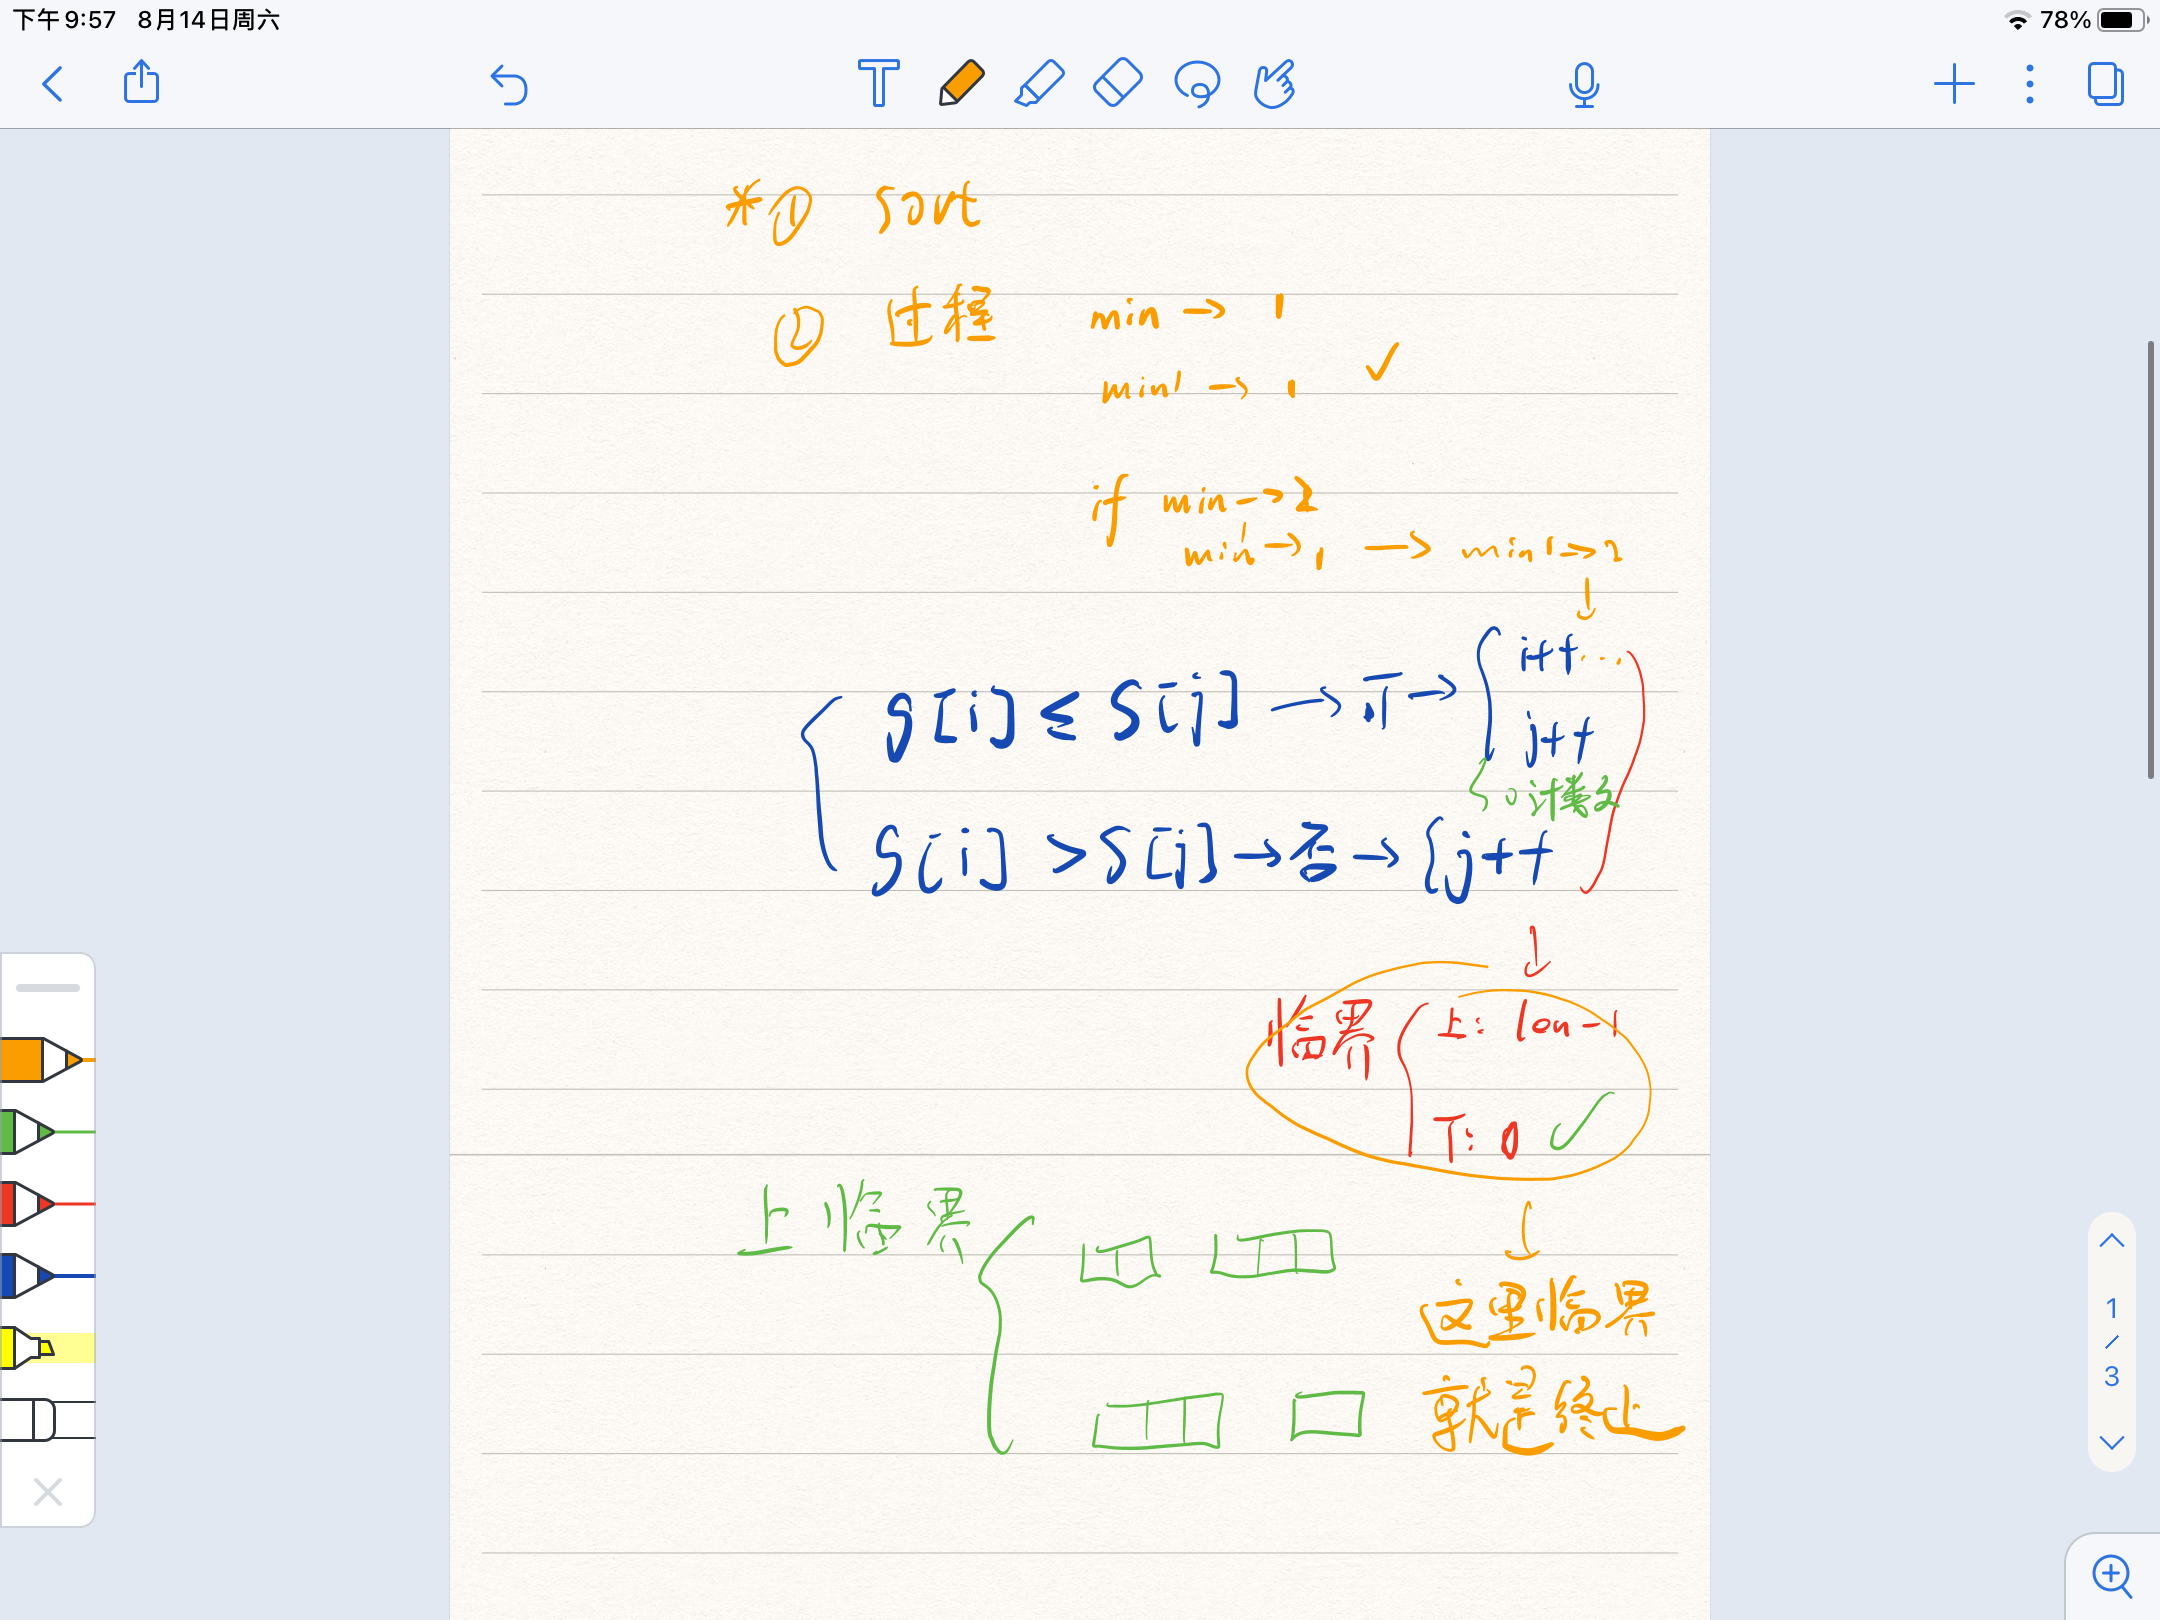 下午9:57 8月14日周六
78%
*① sort
② 过程 min → 1
min' → 1 ✓
if min → 2
min' → 1 → min' → 2
↓
g[i] ≤ S[j] → 可 → { i++ ...
j++
计数
g[i] > S[j] → 否 → { j++
↓
临界 { 上: len-1
下: 0 ✓
上临界 {
↓
这里临界
就是终止
1
/
3